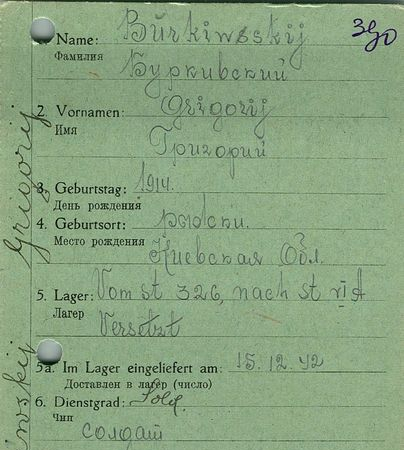 1. Name: Burkiwsskij 390
Фамилия
Буркивский
2. Vornamen: Grigorij
Имя
Григорий
3. Geburtstag: 1914.
День рождения
4. Geburtsort:
Место рождения
Киевская Обл.
5. Lager: Vom st 326, nach st VI A
Лагер
Versetzt
5a. Im Lager eingeliefert am: 15.12.42
Доставлен в лагер (число)
6. Dienstgrad: Sold.
Чин
солдат
wskij Grigorij